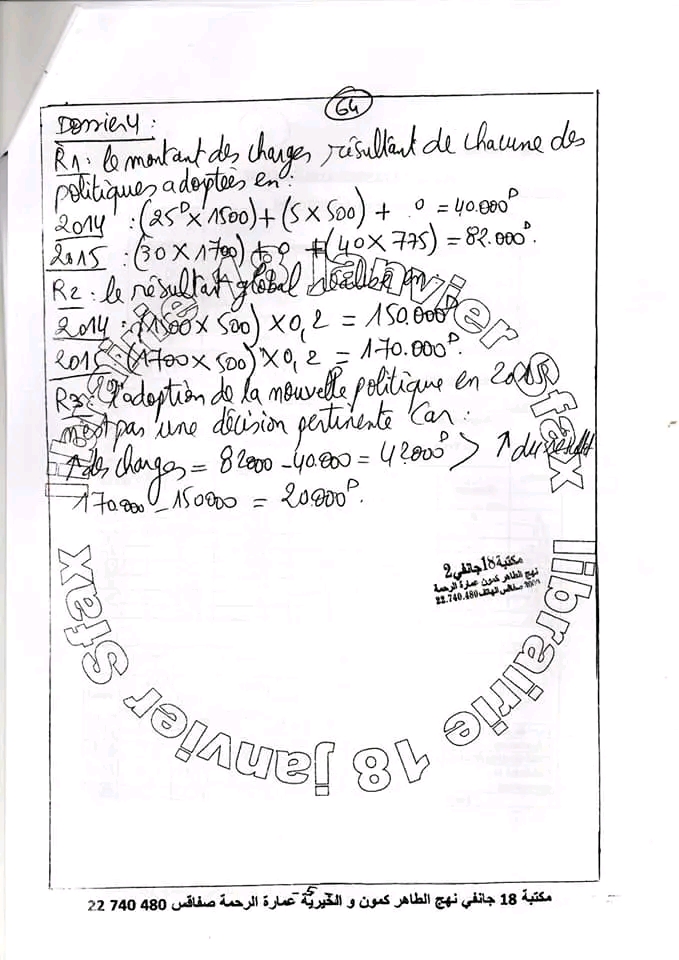 64
Dossier 4 :
R1 : le montant des charges résultant de chacune des
politiques adoptées en :
2014 : (25ᴰ x 1500) + (5 x 500) + 0 = 40.000ᴰ
2015 : (30 x 1700) + 0 + (40 x 775) = 82.000ᴰ.
R2 : le résultat global réalisé en :
2014 : (1500 x 500) x 0,2 = 150.000ᴰ
2015 : (1700 x 500) x 0,2 = 170.000ᴰ.
R3 : l'adoption de la nouvelle politique en 2015
n'est pas une décision pertinente Car :
↑ des charges = 82000 - 40.000 = 42000ᴰ > ↑ du résult
170.000 - 150000 = 20.000ᴰ.
librairie 18 janvier Sfax
مكتبة 18 جانفي 2
نهج الطاهر كمون عمارة الرحمة
صفاقس الهاتف 22.740.480
librairie 18 janvier Sfax
- 5 -
مكتبة 18 جانفي نهج الطاهر كمون و الخيرية عمارة الرحمة صفاقس 480 740 22